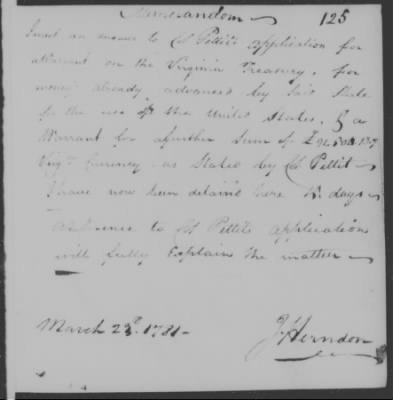 Memorandom 125
I want an answer to Col Pettits application for
a Warrant on the Virginia Treasury, for
money already advanced by said State
for the use of the United States, & a
Warrant for a further Sum of £
Virga Currency as Stated by Col Pettit
I have now been detain'd here days
reference to Col Pettits application
will fully Explain the matter
March 23d. 1781
J Herndon